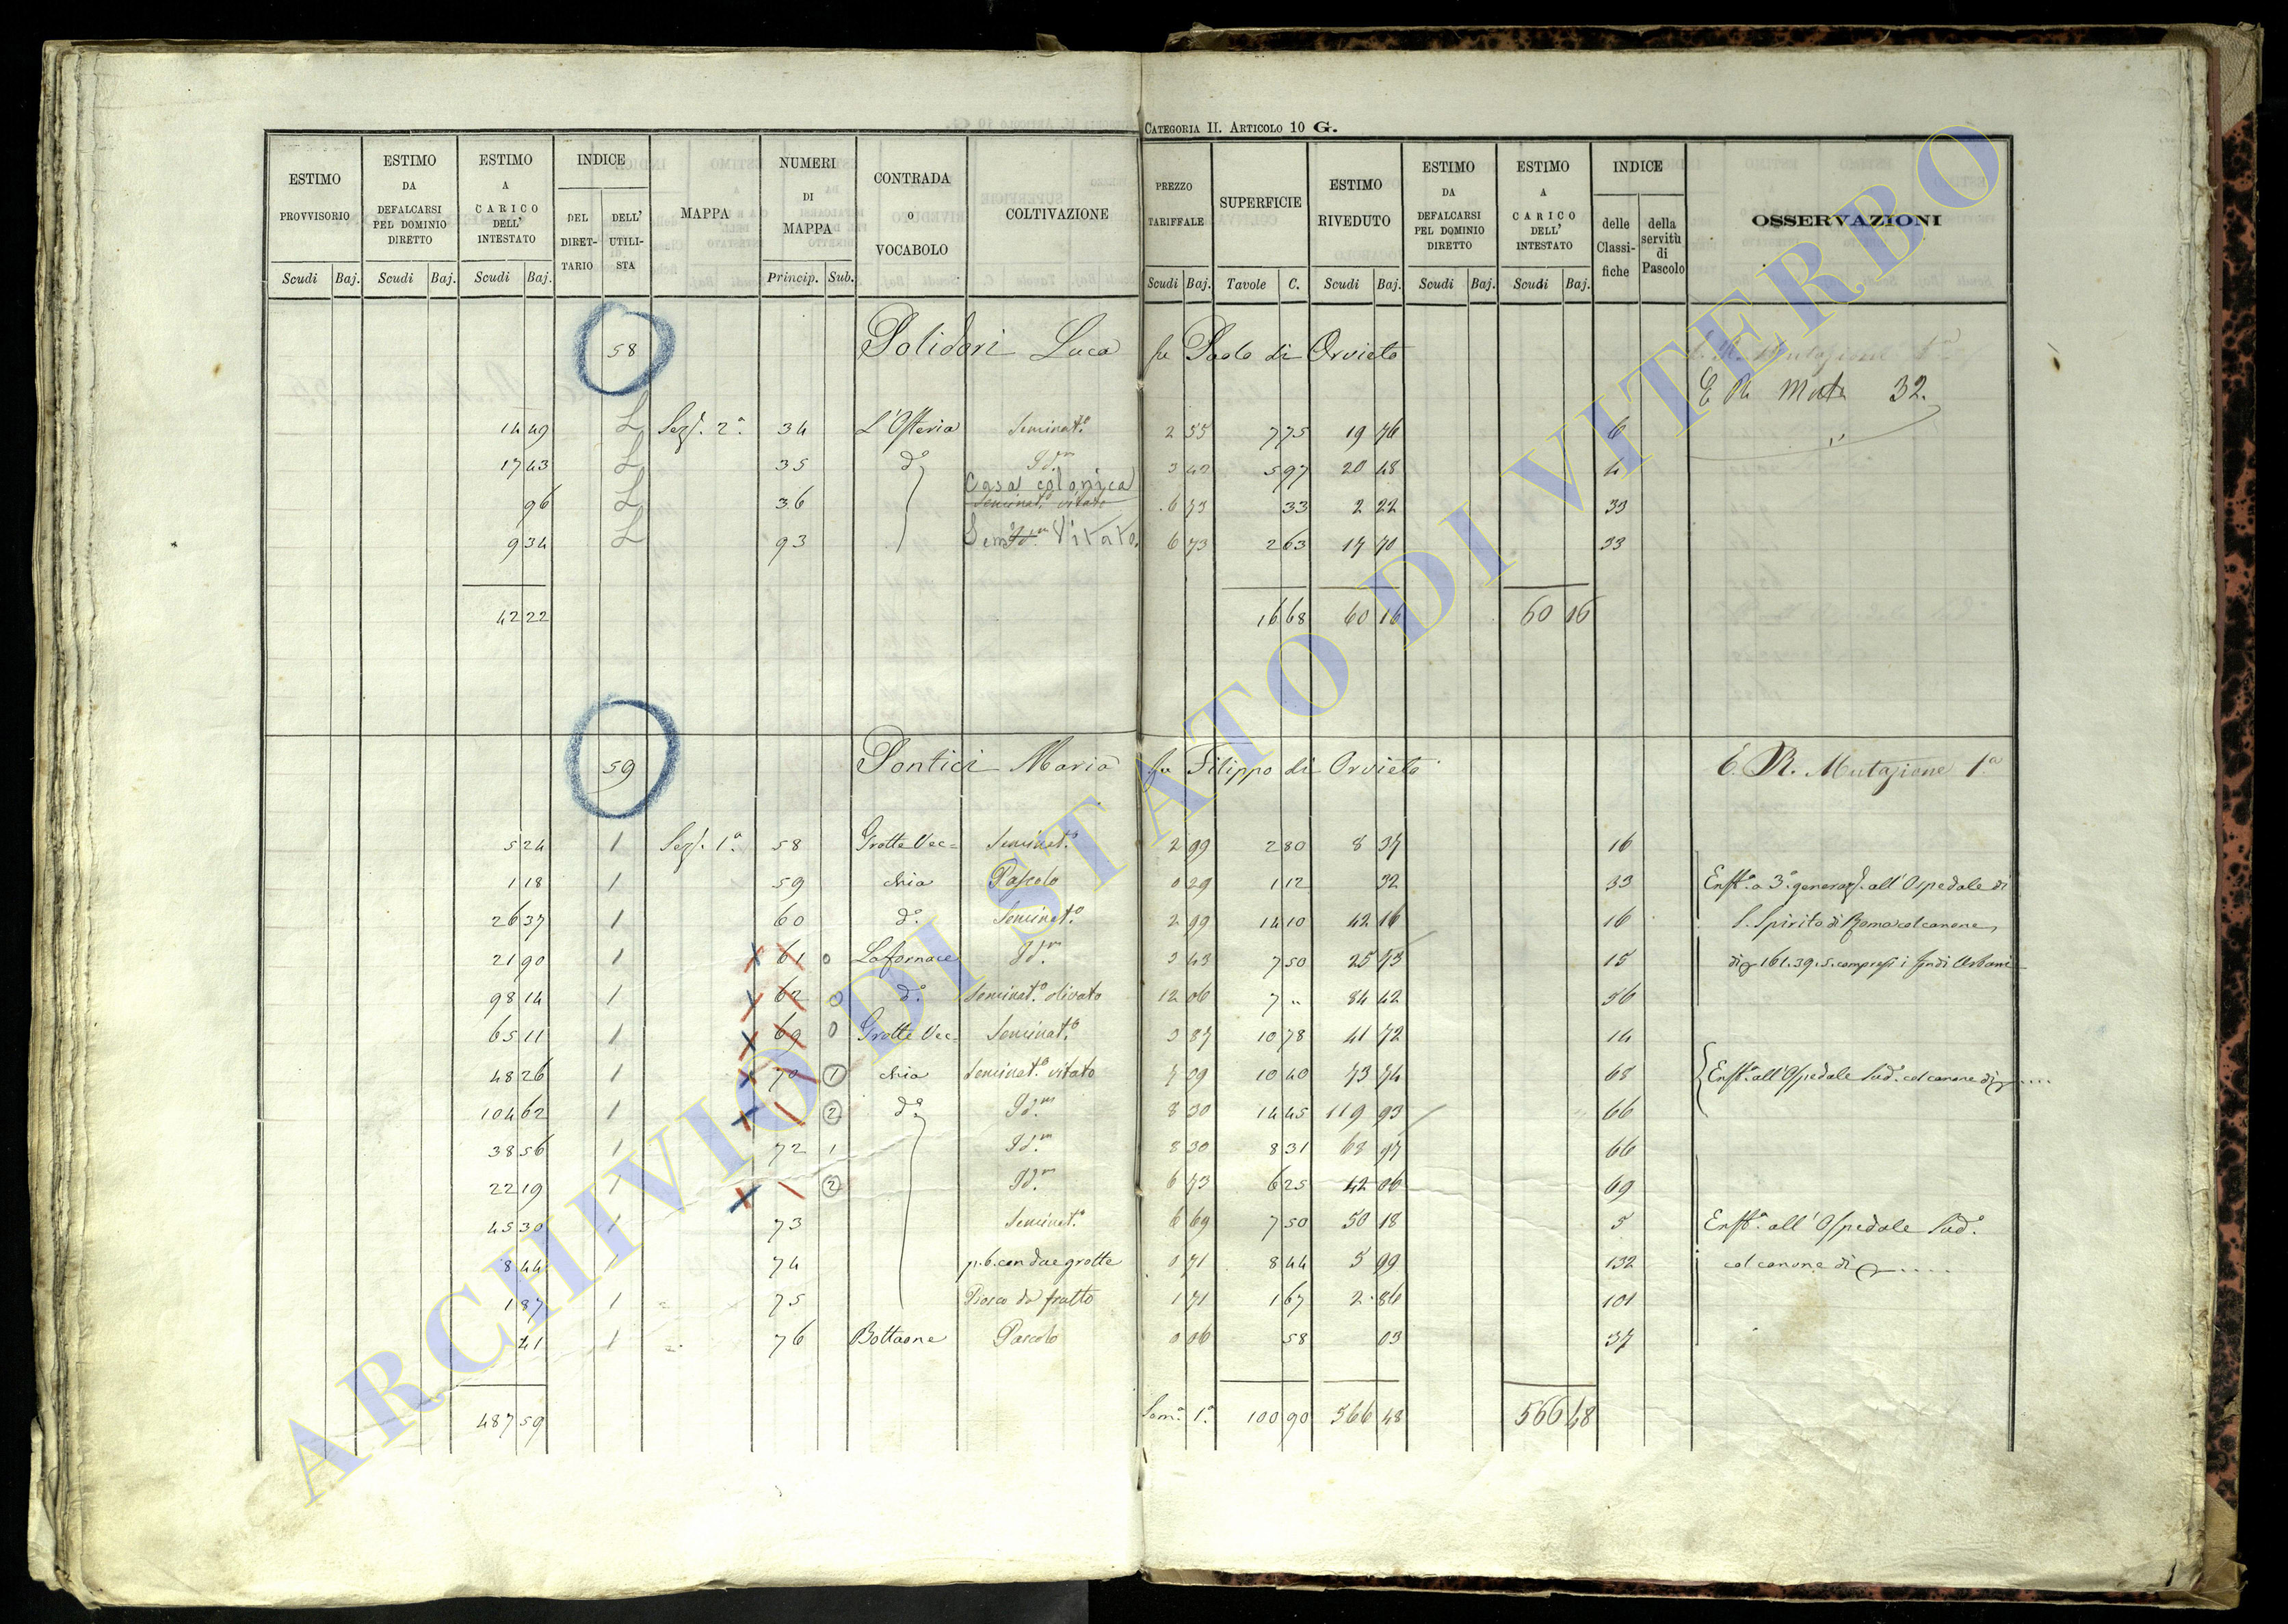 CATEGORIA II. ARTICOLO 10 G.
ESTIMO PROVVISORIO
ESTIMO DA DEFALCARSI PEL DOMINIO DIRETTO
ESTIMO A CARICO DELL' INTESTATO
INDICE
DEL DIRET-TARIO
DELL' UTILI-STA
MAPPA
NUMERI DI MAPPA
CONTRADA O VOCABOLO
COLTIVAZIONE
PREZZO TARIFFALE
SUPERFICIE
ESTIMO RIVEDUTO
ESTIMO DA DEFALCARSI PEL DOMINIO DIRETTO
ESTIMO A CARICO DELL' INTESTATO
INDICE
delle Classi-fiche
della servitù di Pascolo
OSSERVAZIONI
Scudi Baj. Scudi Baj. Scudi Baj. Princip. Sub. Scudi Baj. Tavole C. Scudi Baj. Scudi Baj. Scudi Baj.
58 Polidori Luca fu Paolo di Orvieto
E R Muta 32.
14 49 L Sez. 2ª 34 L'Osteria Seminat.º 2 55 7 75 19 76 6
17 43 L 35 dº Id.m 3 42 5 97 20 48 4
Casa colonica
96 L 36 Seminat.º vitato 6 73 33 2 22 33
9 34 L 93 Sem Id.m Vitato. 6 73 2 63 17 70 33
42 22 16 68 60 16 60 16
59 Pontici Maria fu Filippo di Orvieto E. R. Mutazione 1.ª
5 24 1 Sez. 1ª 58 Grotte Vec= Seminat.º 2 99 2 80 8 37 16
1 18 1 59 chia Pascolo 0 29 1 12 32 33 Enft.ª a 3ª generaz. all'Ospedale di
26 37 1 60 dº Seminat.º 2 99 14 10 42 16 16 S. Spirito di Roma col canone
21 90 1 61 0 Lafornace Id.m 3 43 7 50 25 73 15 di 161.39.5. compresi i fondi Urbani
98 14 1 62 0 dº Seminat.º olivato 12 06 7 " 84 42 56
65 11 1 69 0 Grotte Vec= Seminat.º 3 87 10 78 41 72 14
48 26 1 70 1 chia Seminat.º vitato 7 09 10 40 73 74 68 Enft.ª all'Ospedale Sud.º col canone di ....
104 62 1 2 dº Id.m 8 30 14 45 119 93 66
38 56 1 72 1 Id.m 8 30 8 31 68 97 66
22 19 1 2 Id.m 6 73 6 25 42 06 69
45 30 1 73 Seminat.º 6 69 7 50 50 18 5 Enft.ª all'Ospedale Sud.º
8 44 1 74 p.b. con due grotte 0 71 8 44 5 99 132 col canone di .....
1 87 1 75 Bosco da frutto 1 71 1 67 2 86 101
41 1 76 Bottaone Pascolo 0 06 58 03 37
487 59 Som.ª 1ª 100 90 566 48 566 48
ARCHIVIO DI STATO DI VITERBO